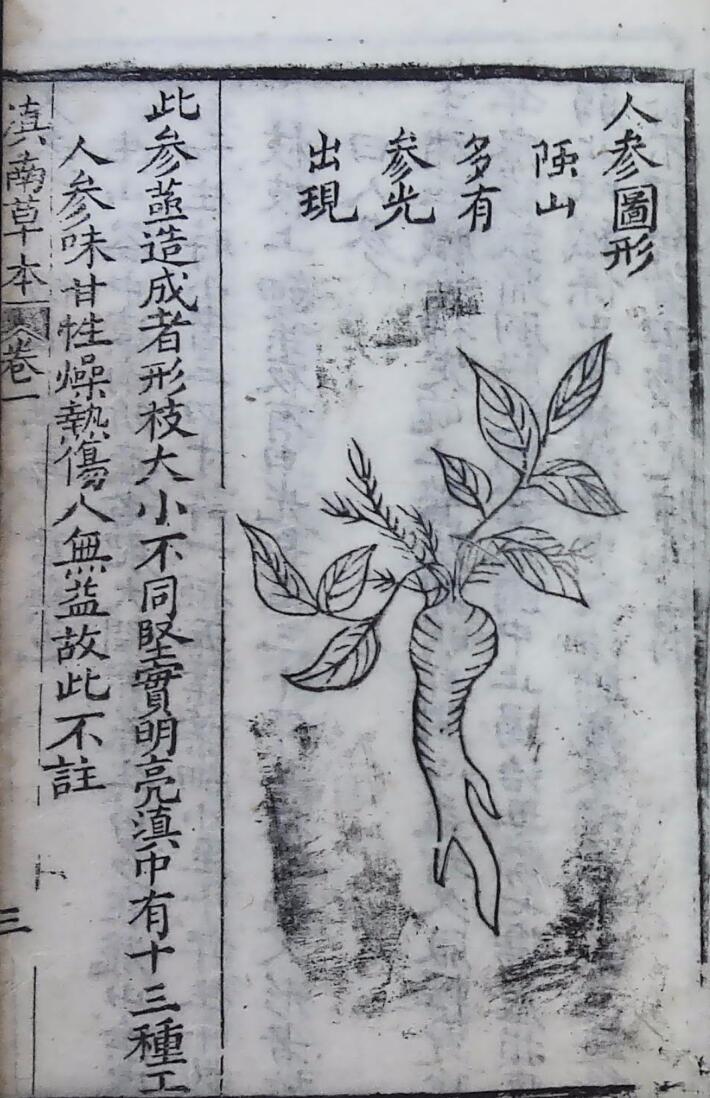 人參圖形
險山
多有
參光
出現
此參蒸造成者形枝大小不同堅實明亮滇中有十三種工
人參味甘性燥熱傷人無益故此不註
滇南草本 卷一
三